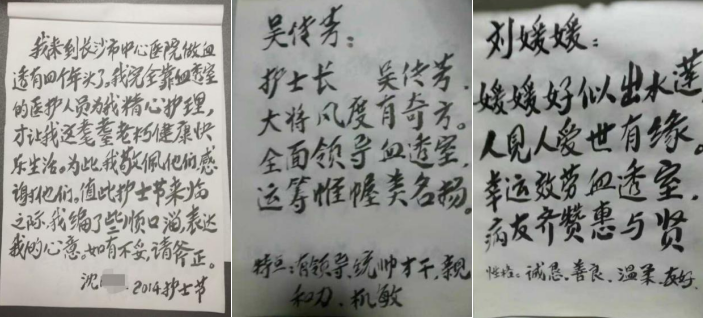 我来到长沙市中心医院做血
透有四个年头了。我完全靠血透室
的医护人员为我精心护理，
才让我这耄耋老朽健康快
乐生活。为此我敬佩他们感
谢他们。值此护士节来临
之际，我编了些顺口溜，表达
我的心意，如有不妥，请斧正。
沈 2014护士节
吴传芳：
护士长 吴传芳，
大将风度有奇方。
全面领导血透室，
运筹惟幄美名扬。
特点：有领导、统帅才干、亲
和力、机敏
刘媛媛：
媛媛好似出水莲，
人见人爱世有缘。
幸运效劳血透室，
病友齐赞惠与贤
性格：诚恳、善良、温柔、友好